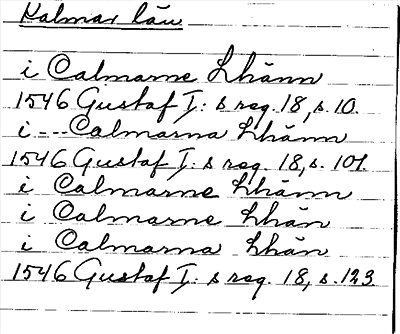 Kalmar län
i Calmarne Lhänn
1546 Gustaf I: s reg. 18, s. 10.
i --- Calmarna Lhänn
1546 Gustaf I: s reg. 18, s. 101.
i Calmarne Lhänn
i Calmarne Lhän
i Calmarna Lhän
1546 Gustaf I: s reg. 18, s. 123